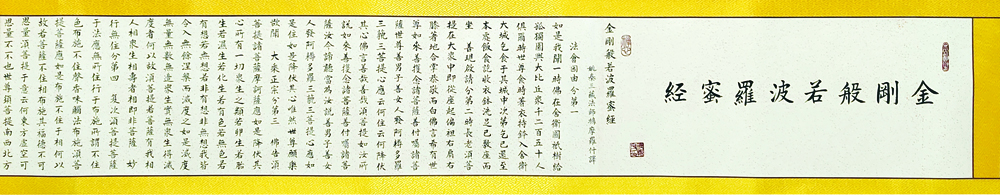 金剛般若波羅蜜經
金剛般若波羅蜜經
姚秦三藏法師鳩摩羅什譯
法會因由分第一
如是我聞一時佛在舍衛國祇樹給
孤獨園與大比丘眾千二百五十人
俱爾時世尊食時著衣持鉢入舍衛
大城乞食于其城中次第乞已還至
本處飯食訖收衣鉢洗足已敷座而
坐 善現啟請分第二 時長老須菩
提在大眾中即從座起偏袒右肩右
膝著地合掌恭敬而白佛言希有世
尊如來善護念諸菩薩善付囑諸菩
薩世尊善男子善女人發阿耨多羅
三藐三菩提心應云何住云何降伏
其心佛言善哉善哉須菩提如汝所
說如來善護念諸菩薩善付囑諸菩
薩汝今諦聽當為汝說善男子善女
人發阿耨多羅三藐三菩提心應如
是住如是降伏其心唯然世尊願樂
欲聞 大乘正宗分第三 佛告須
菩提諸菩薩摩訶薩應如是降伏其
心所有一切眾生之類若卵生若胎
生若濕生若化生若有色若無色若
有想若無想若非有想非無想我皆
令入無餘涅槃而滅度之如是滅度
無量無數無邊眾生實無眾生得滅
度者何以故須菩提若菩薩有我相
人相眾生相壽者相即非菩薩 妙
行無住分第四 復次須菩提菩薩
于法應無所住行于布施所謂不住
色布施不住聲香味觸法布施須菩
提菩薩應如是布施不住于相何以
故若菩薩不住相布施其福德不可
思量須菩提于意云何東方虛空可
思量不不也世尊須菩提南西北方